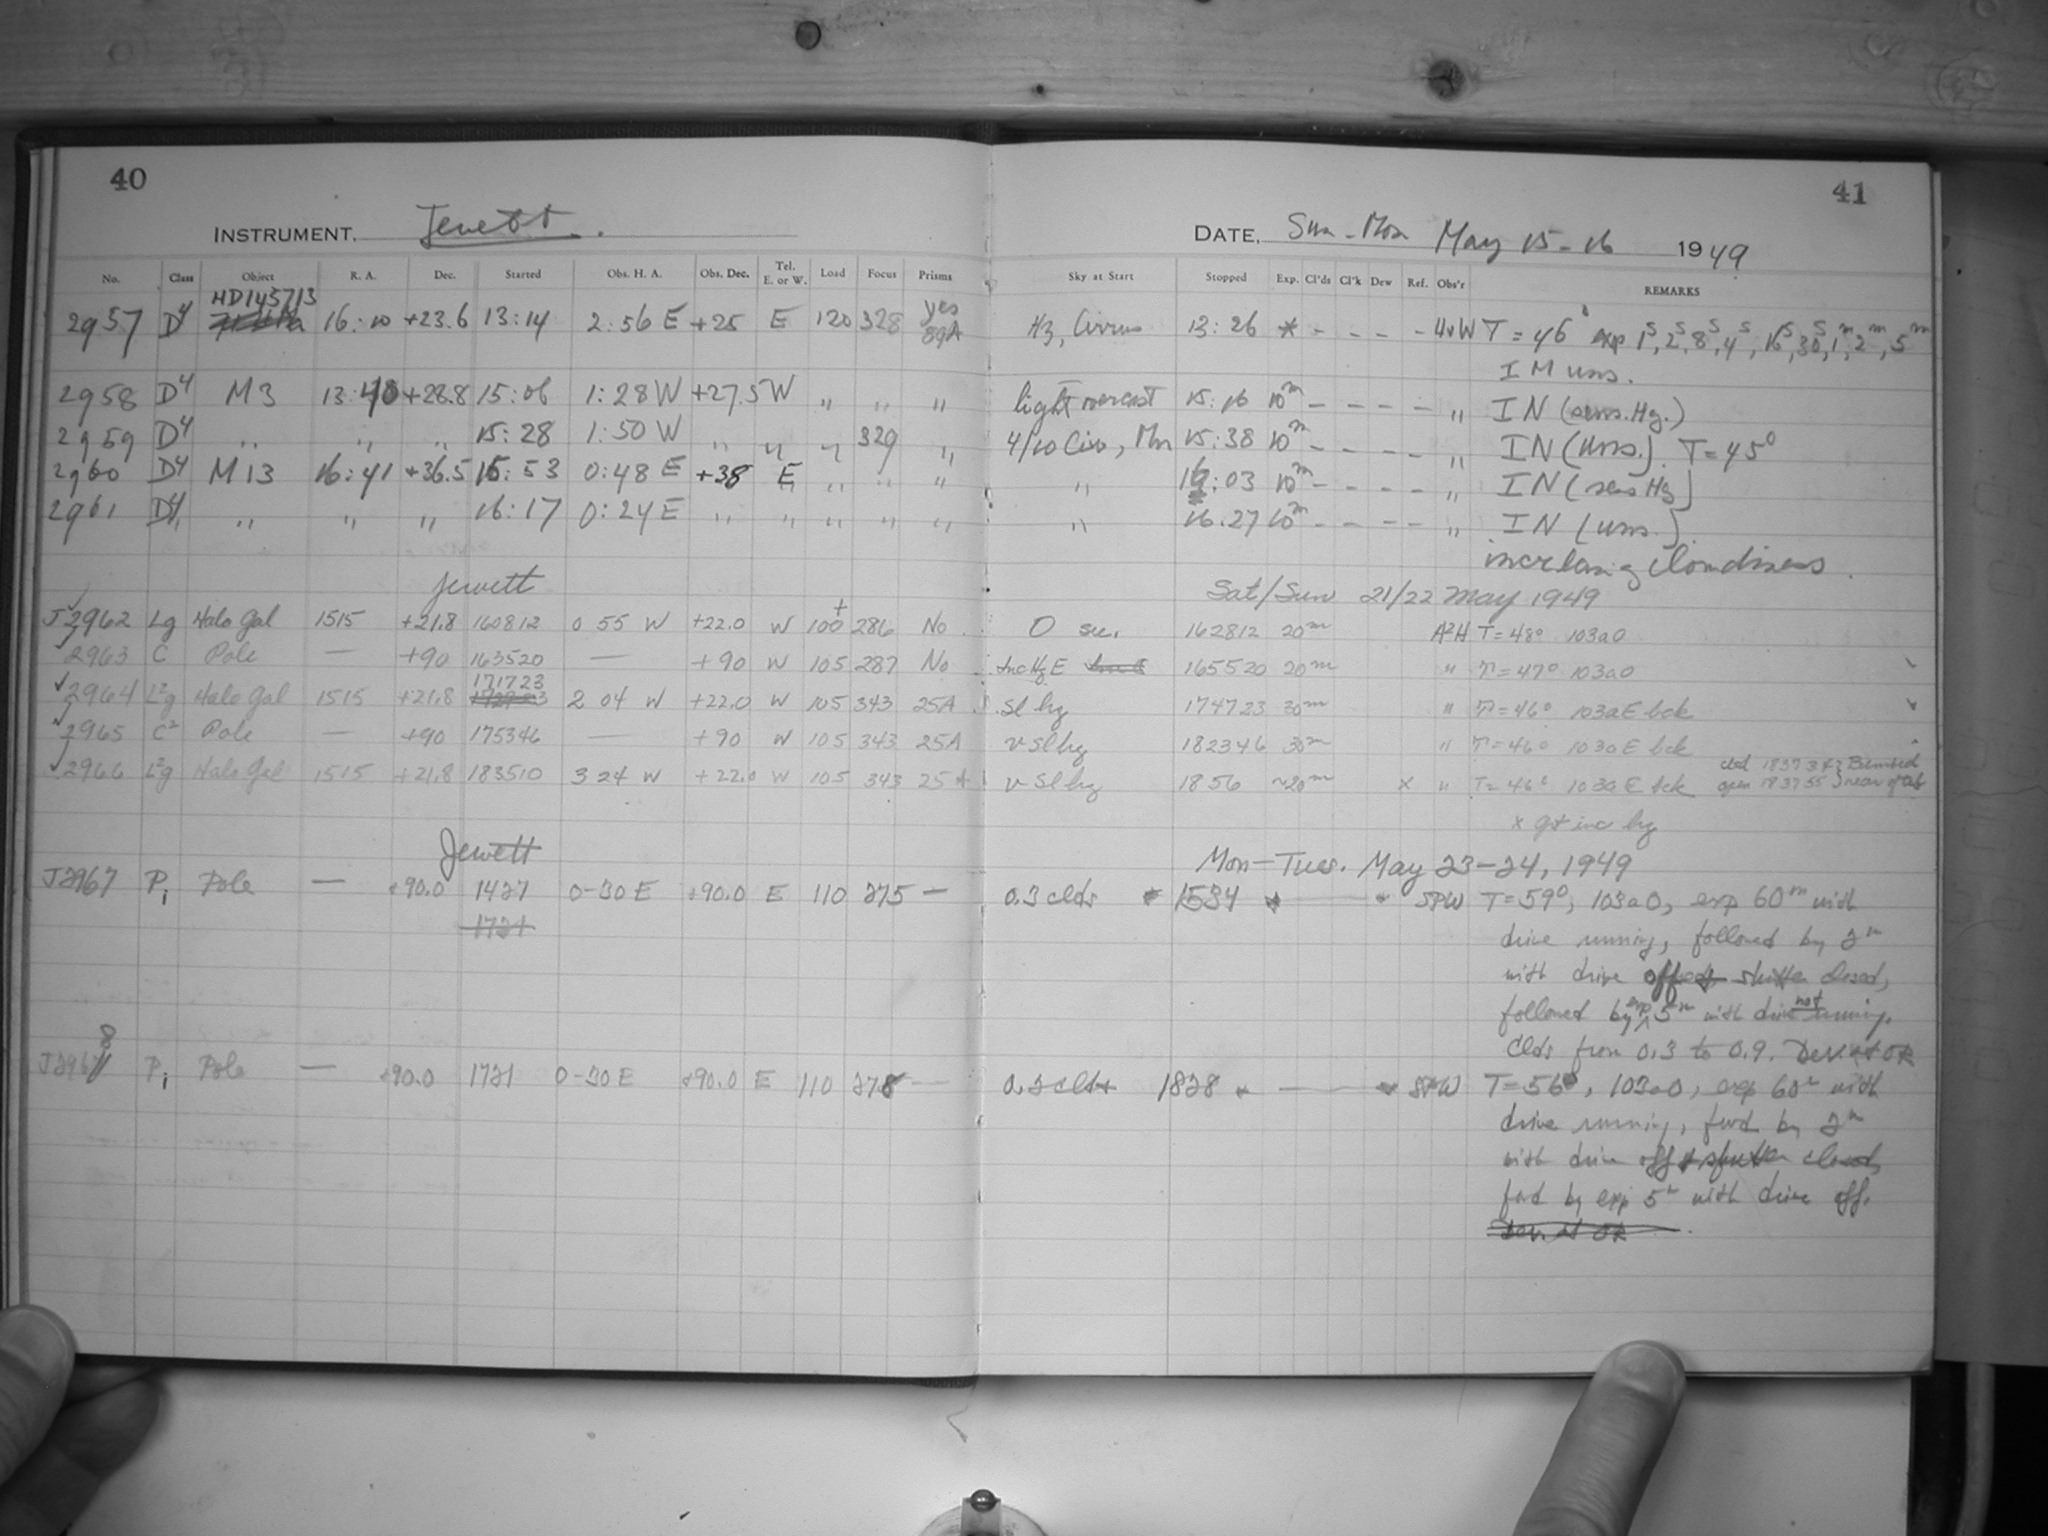 40
41
INSTRUMENT, Jewett.
DATE, Sun-Mon May 15-16 1949
No. Class Object R. A. Dec. Started Obs. H. A. Obs. Dec. Tel. E. or W. Load Focus Prisms Sky at Start Stopped Exp. Cl'ds Cl'k Dew Ref. Obs'r REMARKS
HD145713 yes
2957 D4 16:10 +23.6 13:14 2:56 E +25 E 120 328 89A H3, Cirrus 13:26 * - - - - T = 46° exp 1s, 2s, 8s, 4s, 16s, 30s, 1m, 2m, 5m
I M uns.
2958 D4 M3 13:40 +28.8 15:06 1:28 W +27.5 W " " " light overcast 15:16 10m - - - - " I N (sens. Hg.)
2959 D4 " " " 15:28 1:50 W " " " 329 " 4/10 Cirr, Mn 15:38 10m - - - - " I N (uns.) T=45°
2960 D4 M13 16:41 +36.5 15:53 0:48 E +38 E " " " " 16:03 10m - - - - " I N (sens Hg)
2961 D4 " " " 16:17 0:24 E " " " " " " 16.27 10m - - - - " I N (uns.)
increasing cloudiness.
Jewett Sat/Sun 21/22 May 1949
J 2962 Lg Halo Gal 1515 +21.8 160812 0 55 W +22.0 W 100+ 286 No 0 162812 20m A2H T=48° 103a0
2963 C Pole — +90 163520 — +90 W 105 287 No Inc Hz E 165520 20m " T=47° 103a0
171723
2964 L2g Halo Gal 1515 +21.8 2 04 W +22.0 W 105 343 25A sl hg 174723 30m " T=46° 103aE bck
2965 C2 Pole — +90 175346 — +90 W 105 343 25A v sl hg 182346 30m " T=46° 103aE bck
2966 L2g Halo Gal 1515 +21.8 183510 3 24 W +22.0 W 105 343 25A v sl hg 1856 ~20m x " T=46° 103aE bck clsd 183734
open 183755
x gt inc hg
Jewett Mon-Tues. May 23-24, 1949
J2967 Pi Pole — +90.0 1427 0-30 E +90.0 E 110 275 — 0.3 clds * 1534 * — * SPW T=59°, 103a0, exp 60m with
1721
drive running, followed by 2m
with drive off & shutter closed,
followed by exp 5m with drive not running.
clds from 0.3 to 0.9. Dev. at OR
J2968 Pi Pole — +90.0 1721 0-30 E +90.0 E 110 278 — 0.2 clds 1828 * — * SPW T=56°, 103a0, exp 60m with
drive running, fwd by 2m
with drive off & shutter closed,
fwd by exp 5m with drive off.
Dev. at OR